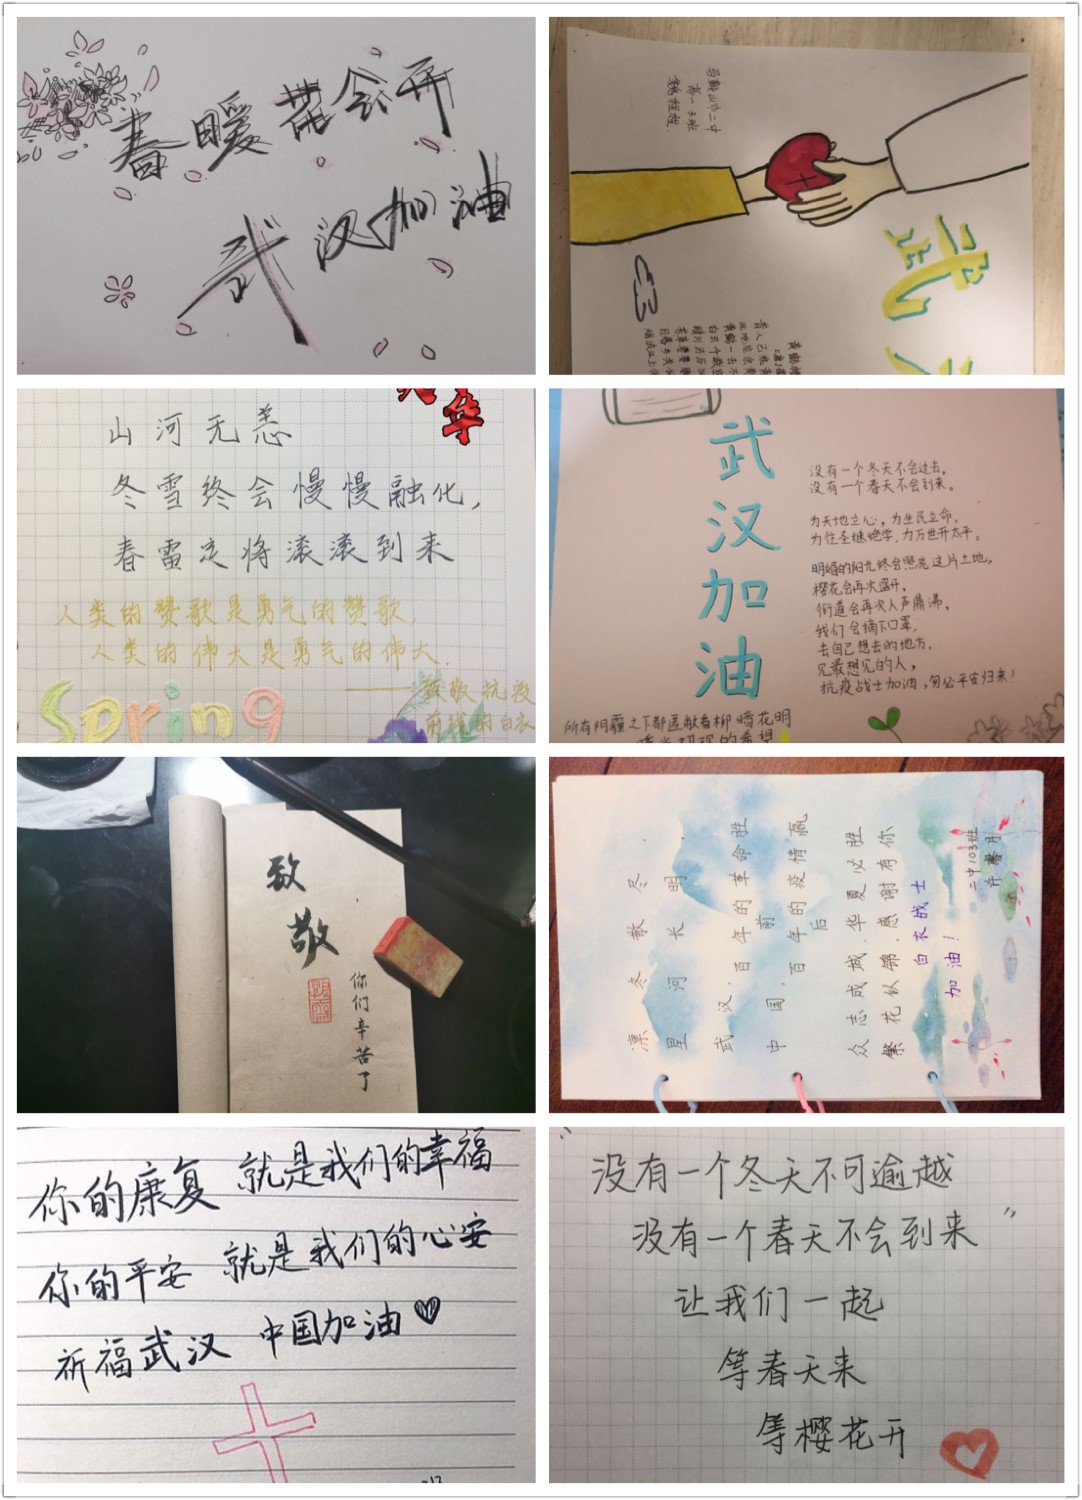 春暖花会开
武汉加油
马鞍山市二中
高一3班
武
山河无恙
冬雪终会慢慢融化，
春雷定将滚滚到来
人类的赞歌是勇气的赞歌，
人类的伟大是勇气的伟大.
——致敬抗疫
前线的白衣
Spring
武汉加油
没有一个冬天不会过去，
没有一个春天不会到来。
为天地立心，为生民立命，
为往圣继绝学，为万世开太平。
明媚的阳光终会照亮这片土地，
樱花会再次盛开，
街道会再次人声鼎沸，
我们会摘下口罩，
去自己想去的地方，
见最想见的人，
抗疫战士加油，勿必平安归来！
所有阴霾之下都医献着柳暗花明
致敬
你们辛苦了
凛冬散尽
星河长明
武汉，百年前的革命胜
中国，百年后的疫情赢
众志成城，华夏必胜
繁花似锦，感谢有你
白衣战士
加油！
二中103班
许馨月
你的康复 就是我们的幸福
你的平安 就是我们的心安
祈福武汉 中国加油
“没有一个冬天不可逾越
没有一个春天不会到来”
让我们一起
等春天来
等樱花开